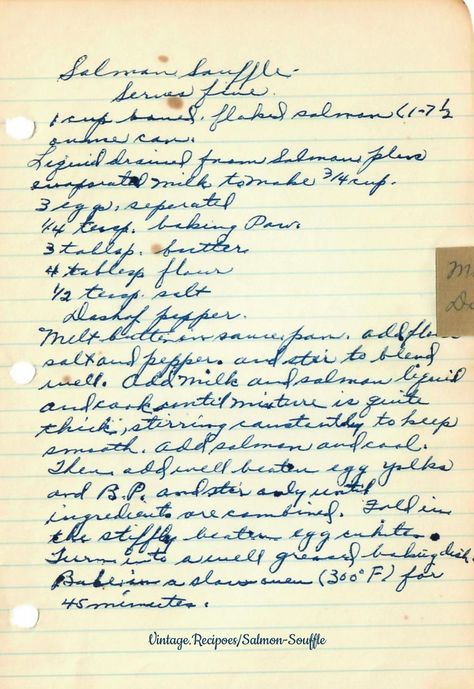 Salmon Souffle.
Serves five.
1 cup boned, flaked salmon (1-7 1/2
ounce can.
Liquid drained from Salmon plus
evaporated milk to make 3/4 cup.
3 eggs, seperated
1/4 teasp. baking Pow.
3 tablsp. butter
4 tablesp flour
1/2 teasp. salt
Dash of pepper.
Melt butter in sauce pan. add flour
salt and pepper. and stir to blend
well. Add milk and salmon liquid
and cook until mixture is quite
thick, stirring constantly to keep
smooth. Add salmon and cool.
Then add well beaten egg yolks
and B.P. and stir only until
ingredients are combined. Fold in
the stiffly beaten egg whites.
Turn into a well greased baking dish.
Bake in a slow oven (300°F) for
45 minutes.
Vintage.Recipoes/Salmon-Souffle